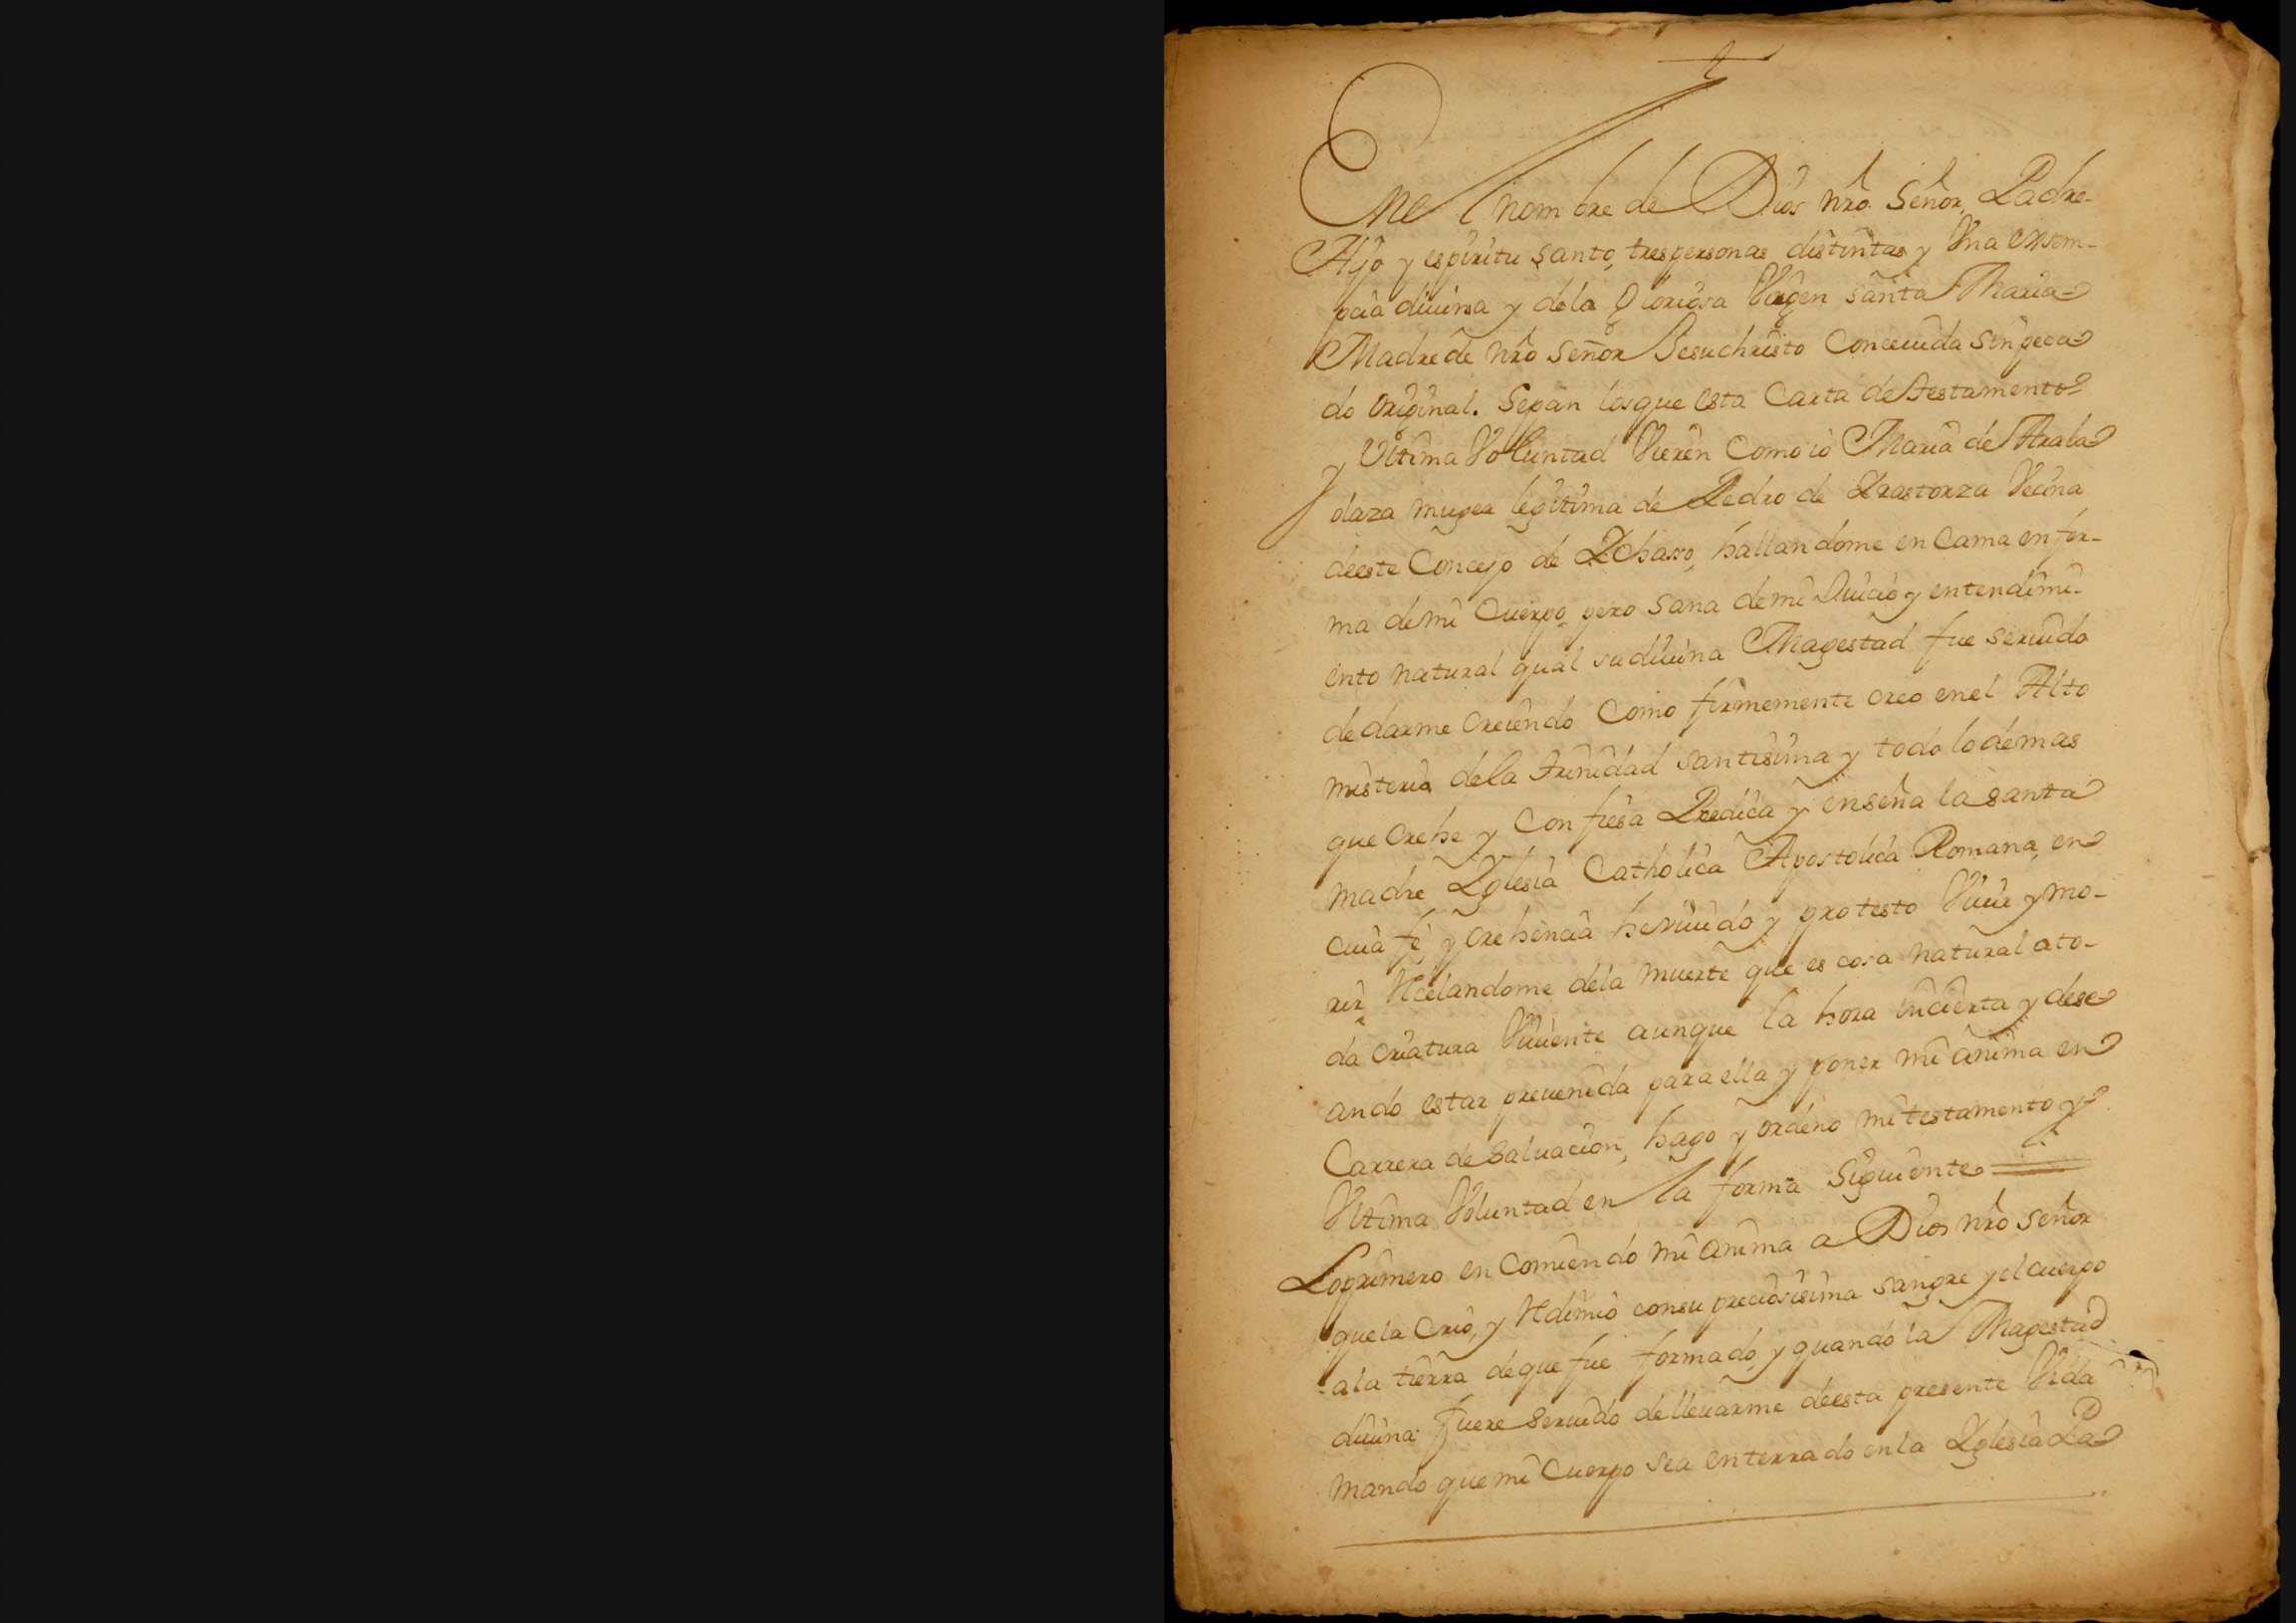 Enel nombre de Dios nr̃o Señor, Padre
Hijo y espiritu santo, tres personas distintas y Vna essen-
çia diuina y de la Gloriosa Virgen santa Maria
Madre de nr̃o señor Jesuchristo Conceuida sin peca
do original. Sepan los que esta Carta de testamento
y Vltima Voluntad Vieren Como io Maria de Arala
olaza muger legitima de Pedro de Yrastorza Vecina
de este Concejo de Ychasso, hallandome en Cama enfer-
ma de mi Cuerpo, pero sana de mi Juicio y entendimi-
ento natural qual su diuina Magestad fue seruido
de darme creiendo Como firmemente creo en el Alto
misterio de la trinidad santisima y todo lo demas
que crehe y Confiesa Predica y enseña la santa
madre Yglesia Catholica Apostolica Romana, en
cuia fè, y crehencia he viuido y protesto Viuir y mo-
rir, Recelandome de la muerte que es cosa natural a to-
da criatura Viuiente aunque la hora incierta y dese
ando estar preuenida para ella y poner mi anima en
Carrera de saluacion, hago y ordeno mi testamento y
Vltima Voluntad en la forma Siguiente
Lo primero en Comiendo mi anima a Dios nr̃o señor
que la Criò, y Redimiò con su preciosisima sangre y el cuerpo
a la tierra de que fue formado, y quando la Magestad
diuina fuere seruido de lleuarme de esta presente Vida
mando que mi Cuerpo sea enterrado en la Yglesia Pa